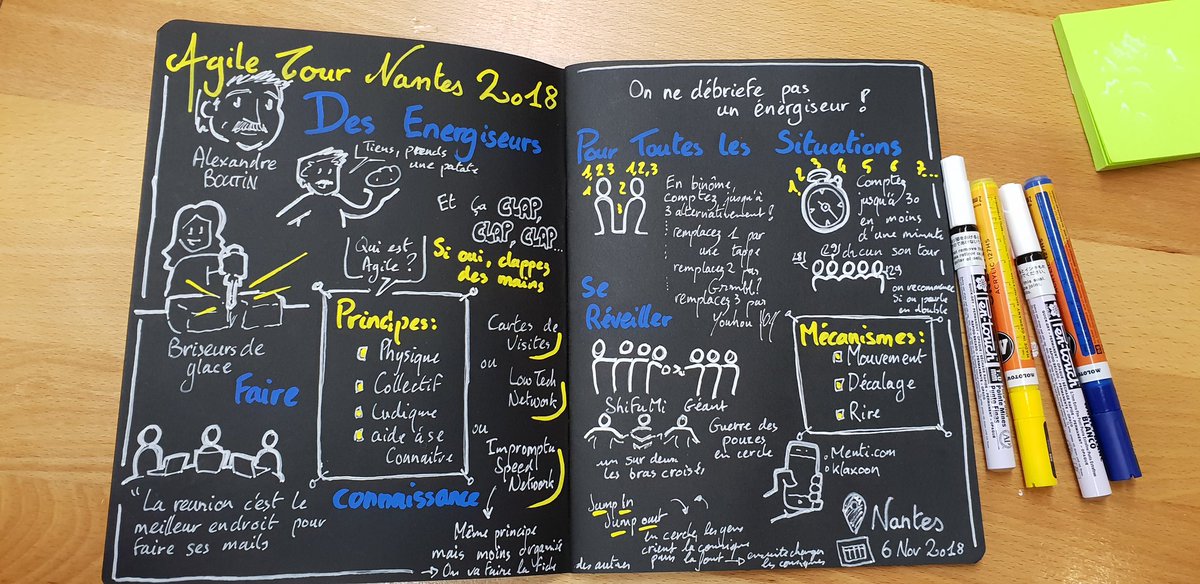 Agile Tour Nantes 2018
Des Energiseurs
Alexandre
BOUTIN
Tiens, prends
une patate
Et ça CLAP,
CLAP, CLAP...
Qui est
Agile ?
Si oui, clappez
des mains
Briseurs de
glace
Faire
"La reunion c'est le
meilleur endroit pour
faire ses mails
Principes:
Physique
Collectif
Ludique
aide à se
Connaitre
connaissance
Cartes de
Visites
ou
LowTech
Network
ou
Impromptu
Speed
Network
Même principe
mais moins organisé
→ On va faire la fiche
des autres
On ne débriefe pas
un énergiseur !
Pour Toutes les Situations
1,2,3 1,2,3
1 2 3
En binôme,
comptez jusqu'à
3 alternativement !
remplacez 1 par
une tappe
remplacez 2 par
Grmbl?
remplacez 3 par
Youhou
1, 2, 3 4 5 6 7...
Comptez
jusqu'à 30
en moins
d'une minute
chacun son tour
28! 29! 29
on recommence
si on parle
en double
Se
Réveiller
ShiFuMi Géant
Guerre des
pouces
en cercle
un sur deux
les bras croisés
Mécanismes:
Mouvement
Décalage
Rire
Menti.com
Klaxoon
Jump In
Jump out
en cercle, les gens
crient la consigne
puis la font → ensuite changer
les consignes
Nantes
6 Nov 2018
ACRYLIC 127HS
MOLOTOW
Pentouch
Pointe Fine
BLANCO